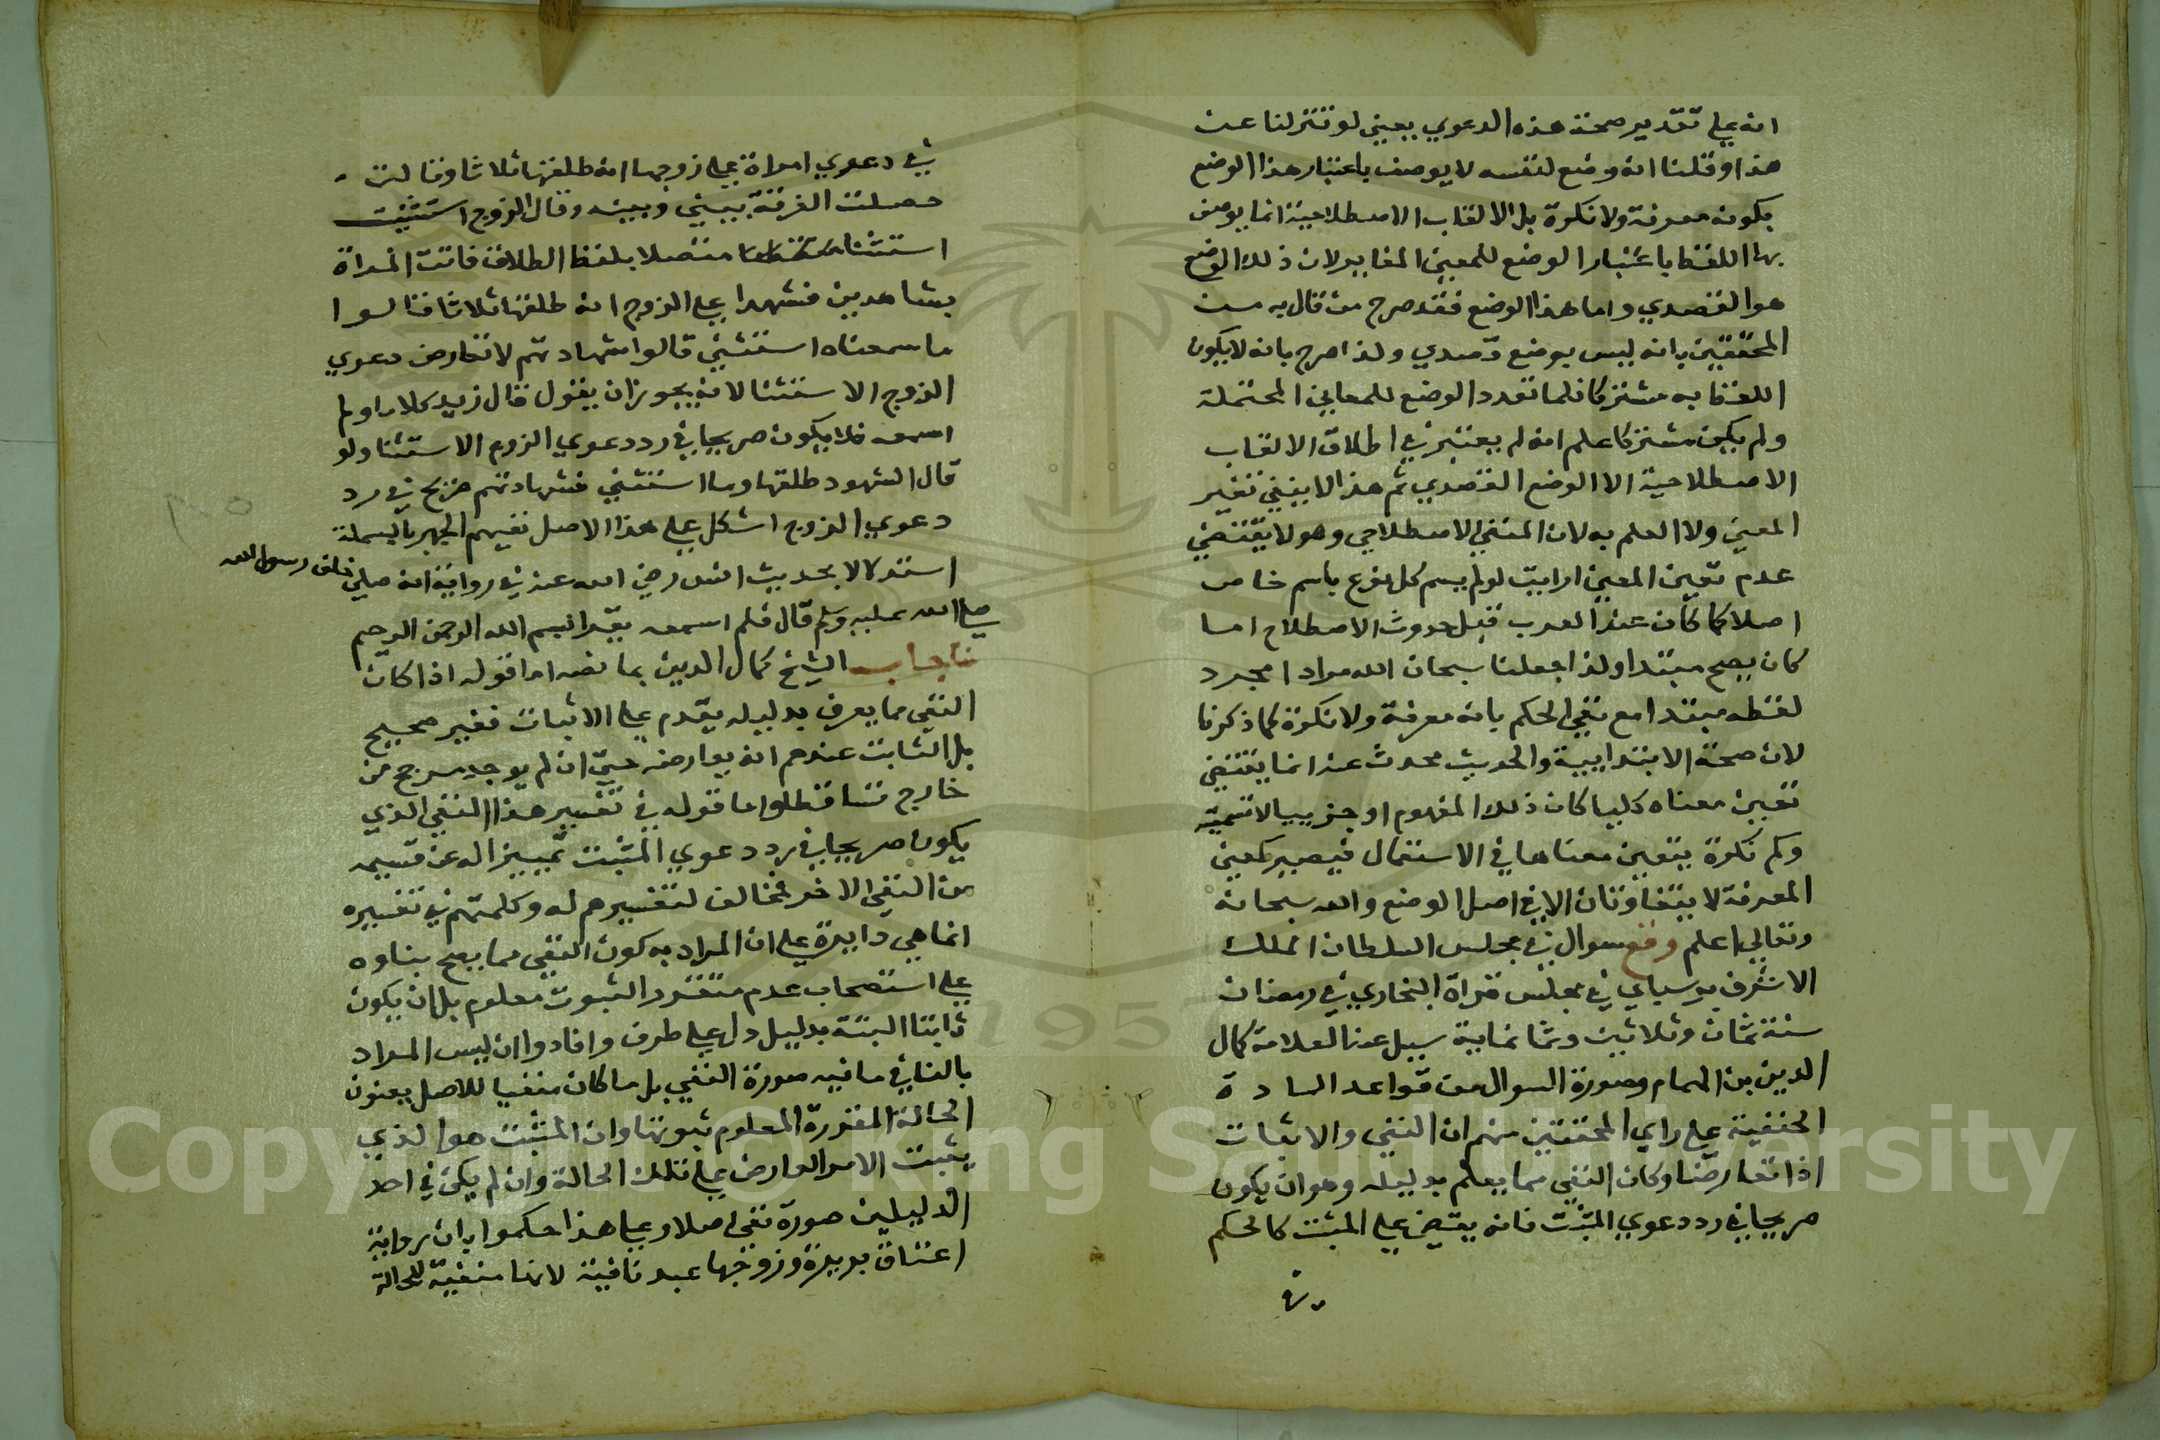 انه علي تقدير صحة هذه الدعوي يعني لو تنزلنا عن
هذا وقلنا انه وضع لنفسه لا يوصف باعتبار هذا الوضع
بكونه معرفة ولا نكرة بل الالقاب الاصطلاحية انما يوصف
بها اللفظ باعتبار الوضع للمعني المغاير لان ذلك الوضع
هو القصدي واما هذا الوضع فقد صرح من قال به من
المحققين بانه ليس بوضع قصدي ولذا صرح بانه لا يكون
اللفظ به مشتركا فلما تعدد الوضع للمعاني المحتملة
ولم يكن مشتركا علم انه لم يعتبر في اطلاق الالقاب
الاصطلاحية الا الوضع القصدي ثم هذا لا ينفي تغير
المعني ولا العلم به لان المنفي الاصطلاحي وهو لا يقتضي
عدم تعين المعني ارايت لو لم يسم كل نوع باسم خاص
اصلا كما كان عند العرب قبل حدوث الاصطلاح اما
كان يصح مبتدا ولذا جعلنا سبحان الله مرادا مجرد
لفظه مبتدا مع نفي الحكم بانه معرفة ولا نكرة كما ذكرنا
لان صحة الابتدايية والحديث محدث عنه انما يقتضي
تعيين معناه كليا كان ذلك المفهوم او جزييا لا تسميته
وكم نكرة يتعين معناها في الاستعمال فيصير كمعني
المعرفة لا يتفاوتان الا في اصل الوضع والله سبحانه
وتعالي اعلم وقع سوال في مجلس السلطان الملك
الاشرف برسباي في مجلس قراة البخاري في رمضان
سنة ثمان وثلاثين وثمانماية سيل عنه العلامة كمال
الدين بن الهمام وصورة السوال من قواعد السادة
الحنفية علي راي المحققين منهم ان النفي والاثبات
اذا تعارضا وكان النفي مما يعلم بدليله وهو ان يكون
صريحا في رد دعوي المثبت فانه يقضي علي المثبت كالحكم
في دعوي امراة علي زوجها انه طلقها ثلاثا وقالت
حصلت الفرقة بيني وبينه وقال الزوج استثنيت
استثناء متصلا بلفظ الطلاق فاتت المراة
بشاهدين فشهدا علي الزوج انه طلقها ثلاثا فقالوا
ما سمعناه استثني قالوا شهادتهم لا تعارض دعوي
الزوج الاستثنا لانه يجوز ان يقول قال زيد كلاما ولم
اسمعه فلا يكون صريحا في رد دعوي الزوج الاستثنا ولو
قال الشهود طلقها وما استثني فشهادتهم صريح في رد
دعوي الزوج اشكل علي هذا الاصل نفيهم الجهر بالبسملة
استدلالا بحديث انس رضي الله عنه في رواية انه صلي خلف رسول الله
صلي الله عليه وسلم قال فلم اسمعه يقرا بسم الله الرحمن الرحيم
فاجاب الشيخ كمال الدين بما نصه اما قوله اذا كان
النفي مما يعرف بدليله يقدم علي الاثبات فغير صحيح
بل الثابت عندهم انه يعارضه حتي ان لم يوجد مرجح من
خارج تساقطا واما قوله في تفسير هذا النفي الذي
يكون صريحا في رد دعوي المثبت تمييزا له عن قسيمه
من النفي الاخر فمخالف لتفسيرهم له وكلمتهم في تفسيره
انما هي دايرة علي ان المراد به كون النفي مما يصح بناوه
علي استصحاب عدم متقرر الثبوت معلوم بل ان يكون
ثابتا البتة بدليل دل علي طرف وافادوا ان ليس المراد
بالنافي ما فيه صورة النفي بل ما كان منفيا للاصل يعنون
الحالة المقررة المعلوم ثبوتها وان المثبت هو الذي
يثبت الامر العارض علي تلك الحالة وان لم يكن في احد
الدليلين صورة نفي اصلا وعلي هذا حكموا بان رواية
اعتاق بريرة وزوجها عبد نافية لانها منفية للحالة